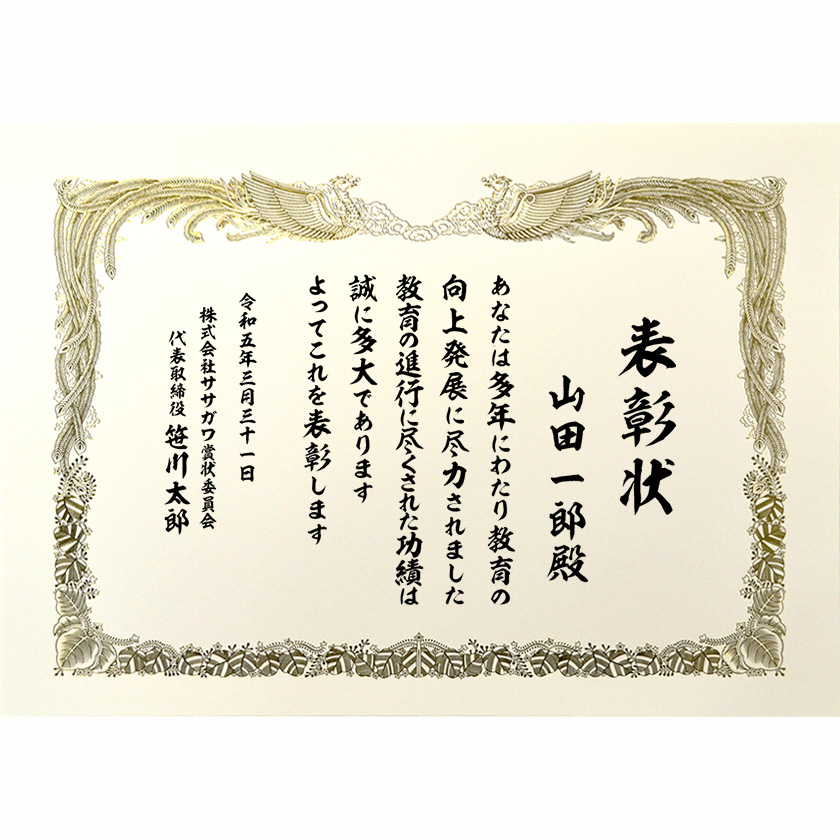 表彰状
山田一郎殿
あなたは多年にわたり教育の
向上発展に尽力されました
教育の進行に尽くされた功績は
誠に多大であります
よってこれを表彰します
令和五年三月三十一日
株式会社ササガワ賞状委員会
代表取締役 笹川太郎